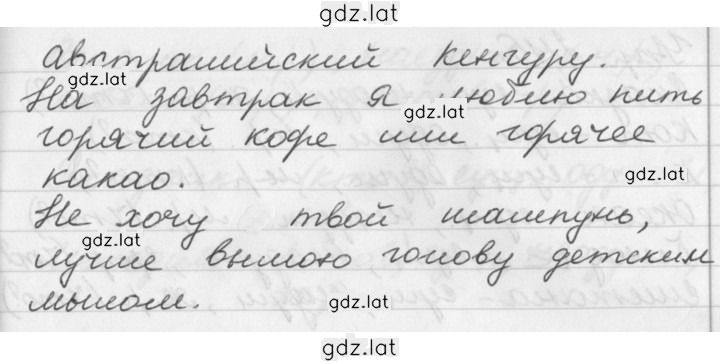 gdz.lat
австралийский кенгуру.
gdz.lat
На завтрак я люблю пить
gdz.lat
горячий кофе или горячее
какао.
gdz.lat
Не хочу твой шампунь,
gdz.lat
лучше вымою голову детским
мылом.
gdz.lat
gdz.lat